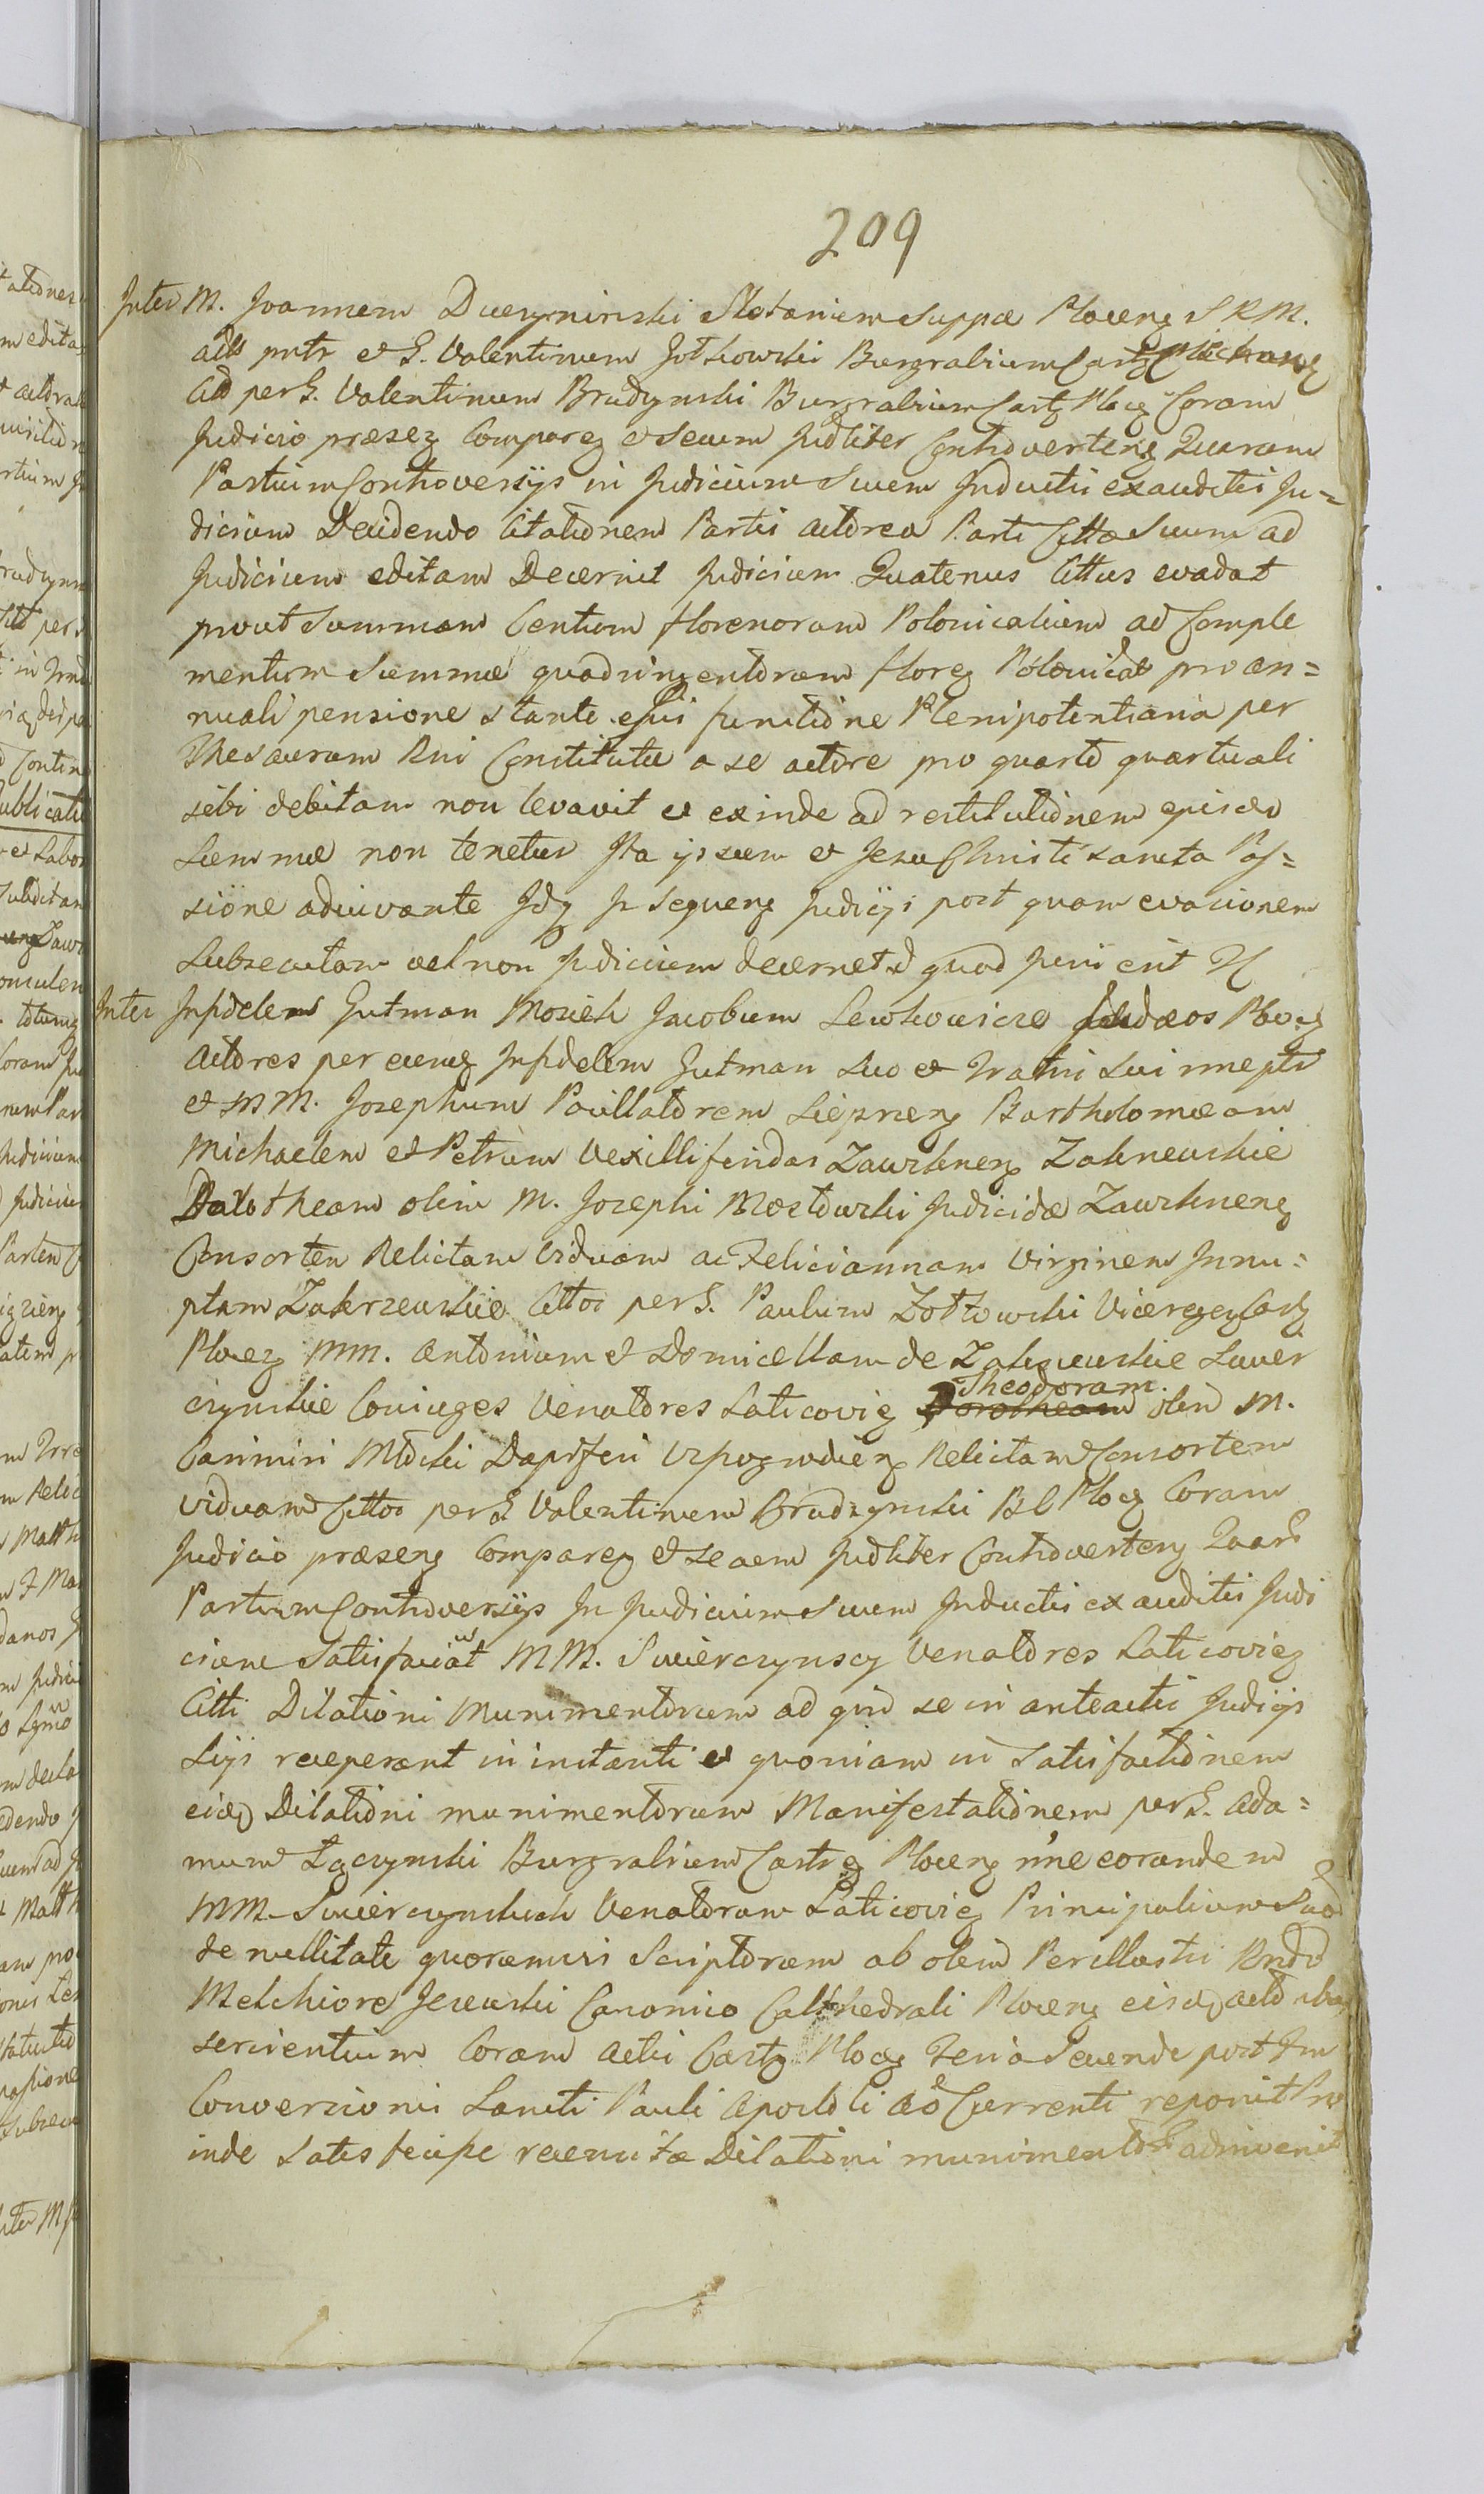 209
Inter M. Joannem Duczyminski Notarium Suppæ Plocenẓ S R M.
actt pntr et G. Valentinum Jotkowski Burgrabium Castẓ
Citt per G. Valentinum Brudzynski Burgrabium Castẓ Plocẓ Coram
Judicio præsenẓ Comparẓ et secum Judliter Controvertenẓ Quarum
Partium Controversijs in Judicium Suum Inductis exauditis Ju=
dicium Decidendo Citationem Partis actorea Parti Cittæ Suum ad
Judicium editam Decernit Judicium Quatenus Cittus evadat
prout Summam Centum florenorum Polonicalium ad Comple
mentum Summæ quadringentorum florẓ Polonical pro an=
nuali pensione stante ejus functione Plenipotentiaria per
Thesaurum Rni Constitutæ a se actore pro quarto quartuali
sibi debitam non levavit et exinde ad restitutionem ejusdem
Summæ non tenetur Ita ipsum et Jesu Christi sancta Pas=
sione adiuvante Idq in sequenẓ Judicijs post quam evasionem
Subsecutam vel non Judicium decernet id quod juris erit
Inter Infidelem Gutman Mosiek Jacobum Lewkowicze Judæos Plocẓ
actores per eumq Infidelem Gutman suo et Fratris sui
et MM. Josephum Pocillatorem Sieprcenẓ Bartholomæum
Michaelem et Petrum Vexilliferidas Zawskrnenẓ Zakrzewskie
Dorotheam olim M. Josephi Mostowski Judicidæ Zawskrnenẓ
Consortem Relictam Viduam ac Feliciannam Virginem Innu=
ptam Zakrzewskie Cittos per G. Paulum Zołtowski Viceregẓ Castẓ
Plocẓ MM. Antonium et Domicellam de Zakrzewskie Swier
czynskie Coniuges Venatores Laticovieẓ Dorotheam Theodoram olim M.
Casimiri Młocki Dapiferi Wyszogrodienẓ Relictam Consortem
viduam Cittos per G Valentinum Brudzynski BC Plocẓ Coram
Judicio præsenẓ Comparẓ et secum Judliter Controvertenẓ Quarū
Partium Controversijs In Judicium Suum Inductis exauditis Judi
cium Satisfaciunt MM. Swierczynscy Venatores Laticovieẓ
Citti Dilationi Munimentorum ad quod se in anteactis Judicijs
Sijs receperant in instanti et quoniam in Satisfactionem
eiusd Dilationi munimentorum Manifestationem per G. Ada=
mum Łączynski Burgrabium Castrẓ Plocenẓ nne eorundem
MM. Swierczynskich Venatorum Laticovieẓ Principalium Suoꝝ
de nullitate quorumvis Scriptorum ab olim Perillustri Rndo
Melchiore Jerewski Canonico Cathedrali Plocenẓ eisdꝫ actoribus
servientium Coram Actis Castrẓ Plocẓ Feria Secunda post Fm
Conversionis Sancti Pauli Apostoli Aō Currenti reponit Pro
inde Satis fecisse recensitæ Dilationi munimentorꝝ adinvenit